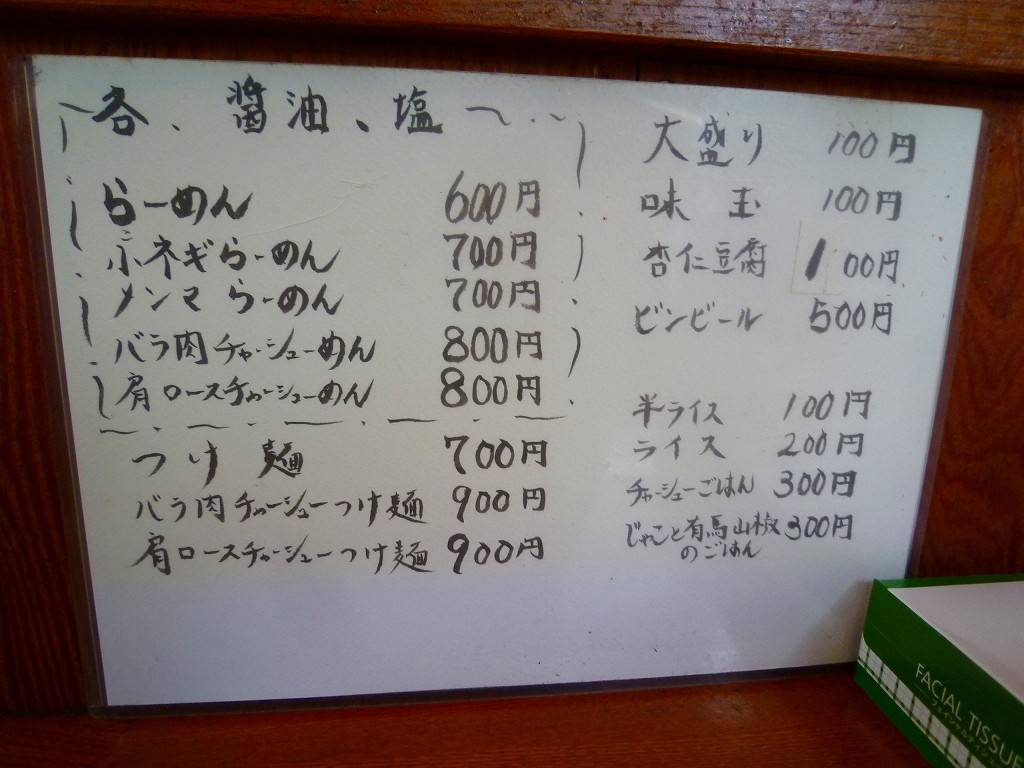 各、醤油、塩
らーめん 600円
小ネギらーめん 700円
メンマらーめん 700円
バラ肉チャーシューめん 800円
肩ロースチャーシューめん 800円
つけ麺 700円
バラ肉チャーシューつけ麺 900円
肩ロースチャーシューつけ麺 900円
大盛り 100円
味玉 100円
杏仁豆腐 100円
ビンビール 500円
半ライス 100円
ライス 200円
チャーシューごはん 300円
じゃこと有馬山椒 300円
のごはん
FACIAL TISSUE